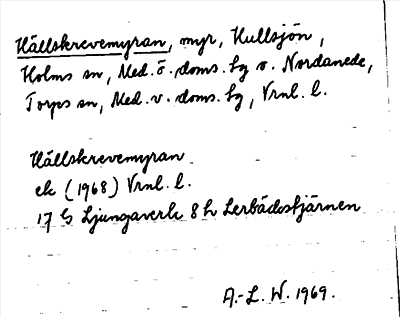 Hällskrevemyran, myr, Hullsjön,
Holms sn, Med. ö. doms. hg o. Nordanede,
Torps sn, Med. v. doms. hg, Vrnl. l.
Hällskrevemyran
ek (1968) Vrnl. l.
17 G Ljungaverk 8 h Lerbäckstjärnen
A.-L. W. 1969.